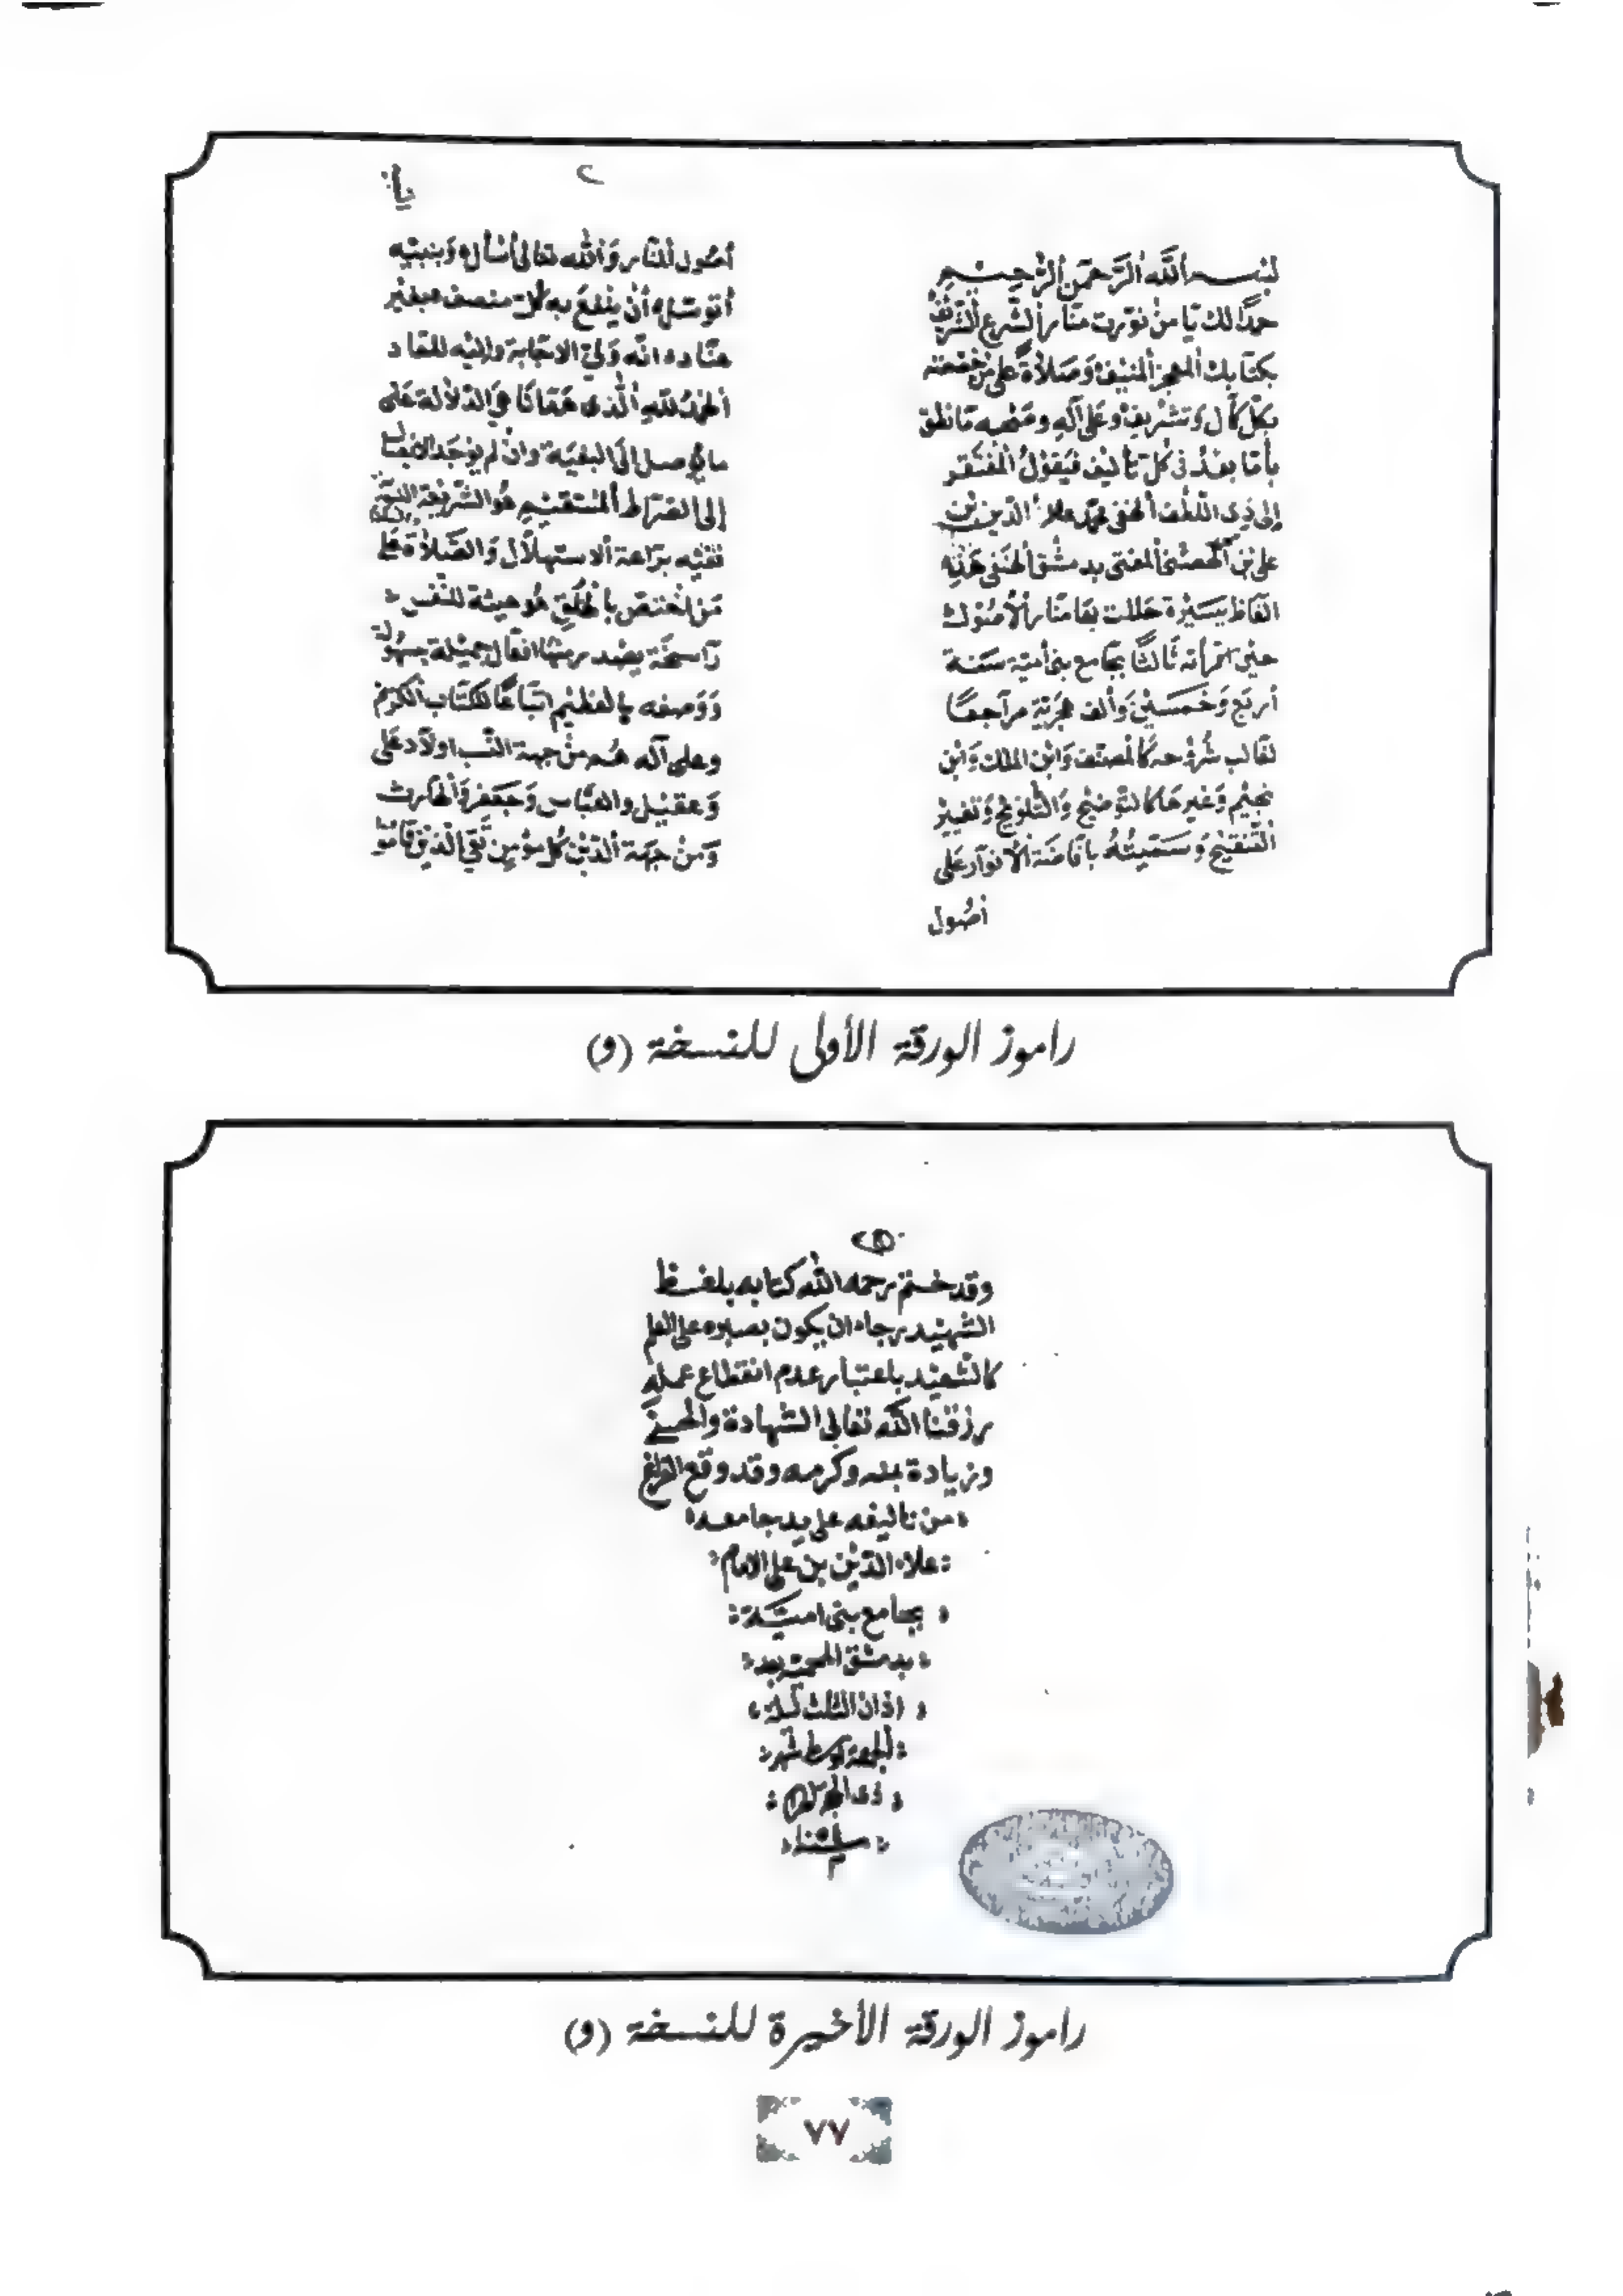 بسم الله الرحمن الرحيم
حمدًا لك يا من نورت منار الشرع الشريف
بكتابك المعجز المنيف وصلاة على من خصصته
بكل كمال وتشريف وعلى آله وصحبه ما نطق
بأما بعد في كل تأليف فيقول المفتقر
إلى ذي اللطف الخفي محمد علاء الدين بن
علي بن الحصني المفتي بدمشق الحنفي هذه
الفاظ يسيرة حللت بها منار الأصول
حين اقرأته ثالثًا بجامع بني أمية سنة
أربع وخمسين وألف هجرية مراجعًا
لغالب شروحه كالمصنف وابن الملك وابن
نجيم وغيرها كالتوضيح والتلويح وتغيير
التنقيح وسميته بافاضة الأنوار على
أصول
٢
أصول المنار والله تعالى أسأل وبنبيه
أتوسل أن ينفع به كل منصف بغير
عناد انه ولي الاجابة واليه المعاد
الحمد لله الذي هدانا هي الدلالة على
ما يوصل إلى البغية وان لم يوجد
إلى الصراط المستقيم هو الشريعة
ففيه براعة الاستهلال والصلاة على
من اختص بالخلق هو هيئة للنفس
راسخة يصدر منها افعال جميلة بسهولة
ووصفه بالعظيم اتباعًا للكتاب الكريم
وعلى آله هم من جهة النسب اولاد علي
وعقيل والعباس وجعفر والحارث
ومن جهة الدين كل مؤمن تقي الذين قاموا
راموز الورقة الأولى للنسخة (و)
وقد ختم رحمه الله كتابه بلفظ
الشهيد رجاء ان يكون بصبره على العلم
كالشهيد باعتبار عدم انقطاع عمله
رزقنا الله تعالى الشهادة والحسنى
وزيادة بمنه وكرمه وقد وقع الفراغ
من تاليفه على يد جامعه
علاء الدين بن علي الامام
بجامع بني امية
بدمشق المحمية بعد
اذان الثلث ليلة
الجمعة اوسط شهر
ذي
راموز الورقة الأخيرة للنسخة (و)
٧٧